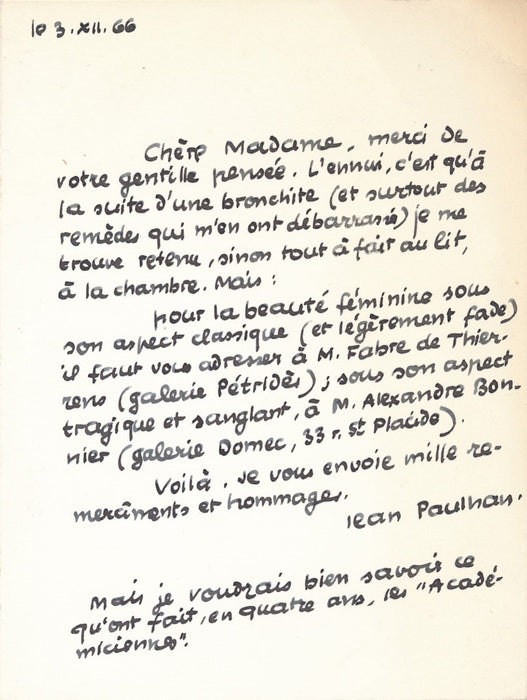 le 3.XII.66
Chère Madame, merci de
votre gentille pensée. L'ennui, c'est qu'à
la suite d'une bronchite (et surtout des
remèdes qui m'en ont débarrassé) je me
trouve retenu, sinon tout à fait au lit,
à la chambre. Mais :
pour la beauté féminine sous
son aspect classique (et légèrement fade)
il faut vous adresser à M. Fabre de Thier-
rens (galerie Pétridès) ; sous son aspect
tragique et sanglant, à M. Alexandre Bon-
nier (galerie Domec, 33 r. St Placide).
Voilà. Je vous envoie mille re-
merciments et hommages.
Jean Paulhan.
Mais je voudrais bien savoir ce
qu'ont fait, en quatre ans, les "Acadé-
miciennes".